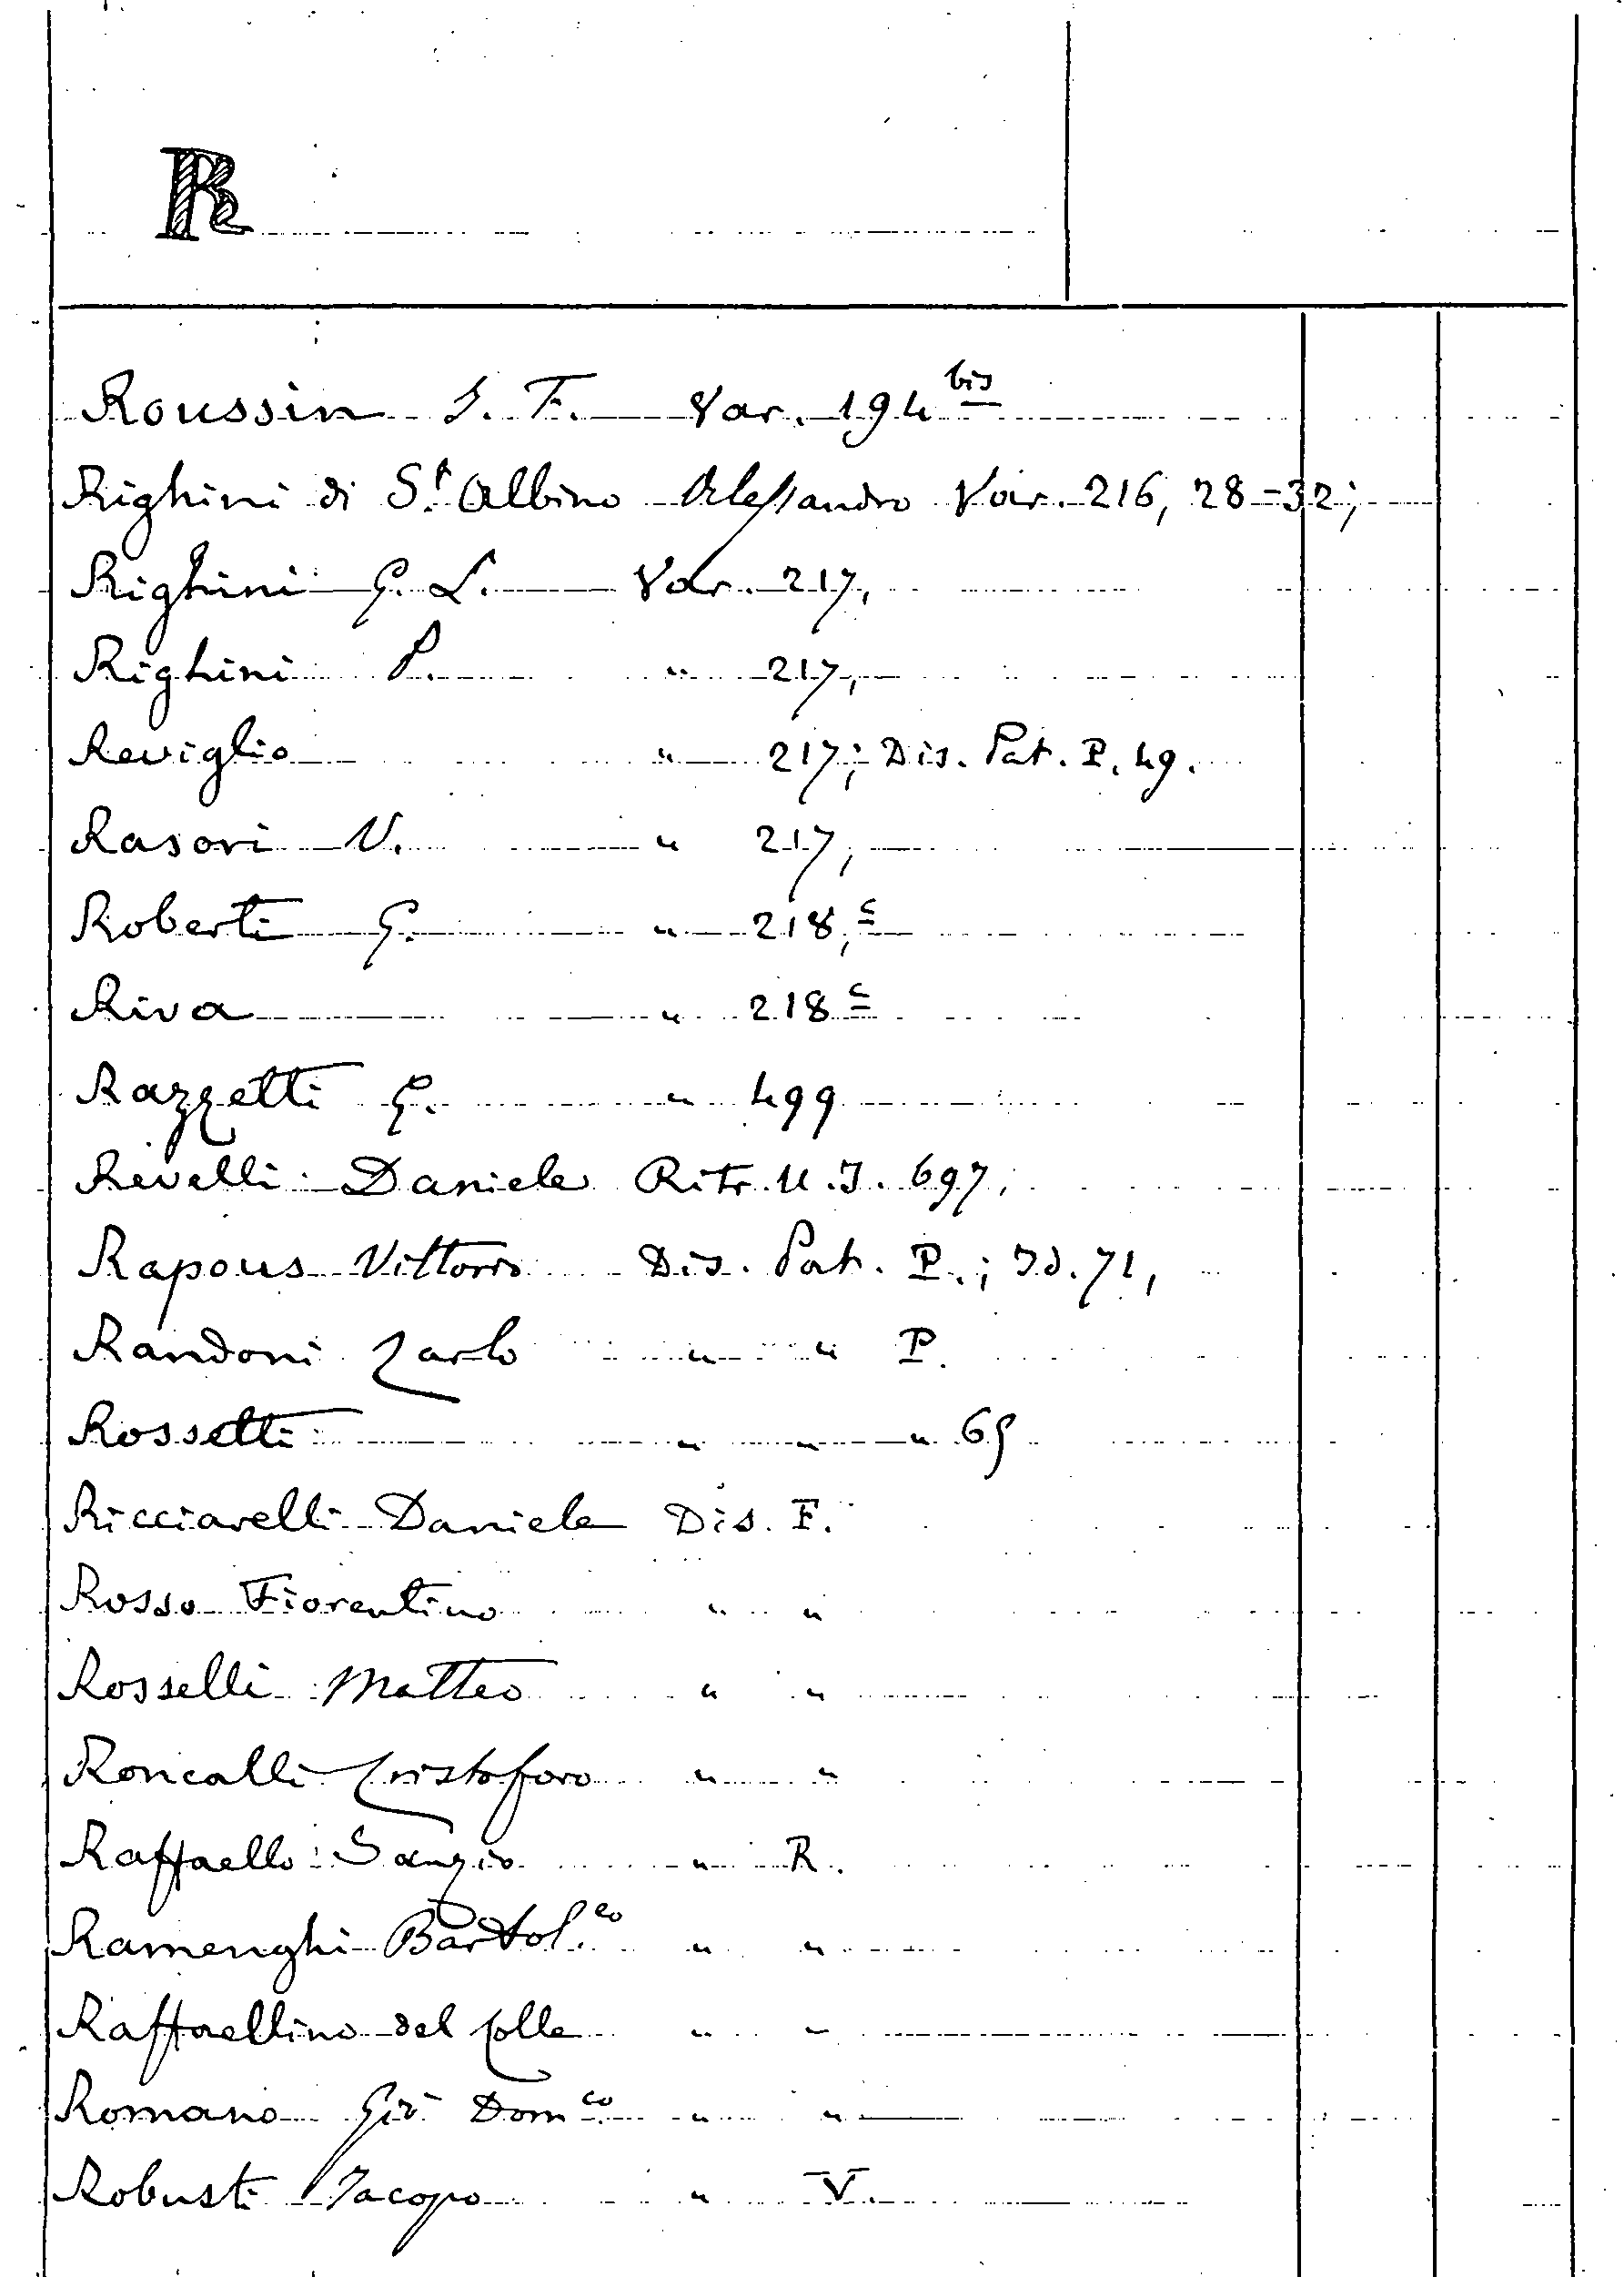 R
Roussin J. F. Var. 194 bis
Righini di St. Albino Alessandro Var. 216, 28-32;
Righini G. L. Var. 217,
Righini P. " 217,
Reviglio " 217; Dis. Pat. P. 49.
Rasori V. " 217,
Roberti G. " 218, c
Riva " 218 c
Razzetti G. " 499
Revelli Daniele Ritr. U. I. 697,
Rapous Vittorio Dis. Pat. P.; Id. 71,
Randoni Carlo " " P.
Rossetti " " " 69
Ricciarelli Daniele Dis. F.
Rosso Fiorentino " "
Rosselli Matteo " "
Roncalli Cristoforo " "
Raffaello Sanzio " R.
Ramenghi Bartol.eo " "
Raffaellino del Colle " "
Romano Gio Dom.co " "
Robusti Jacopo " V.